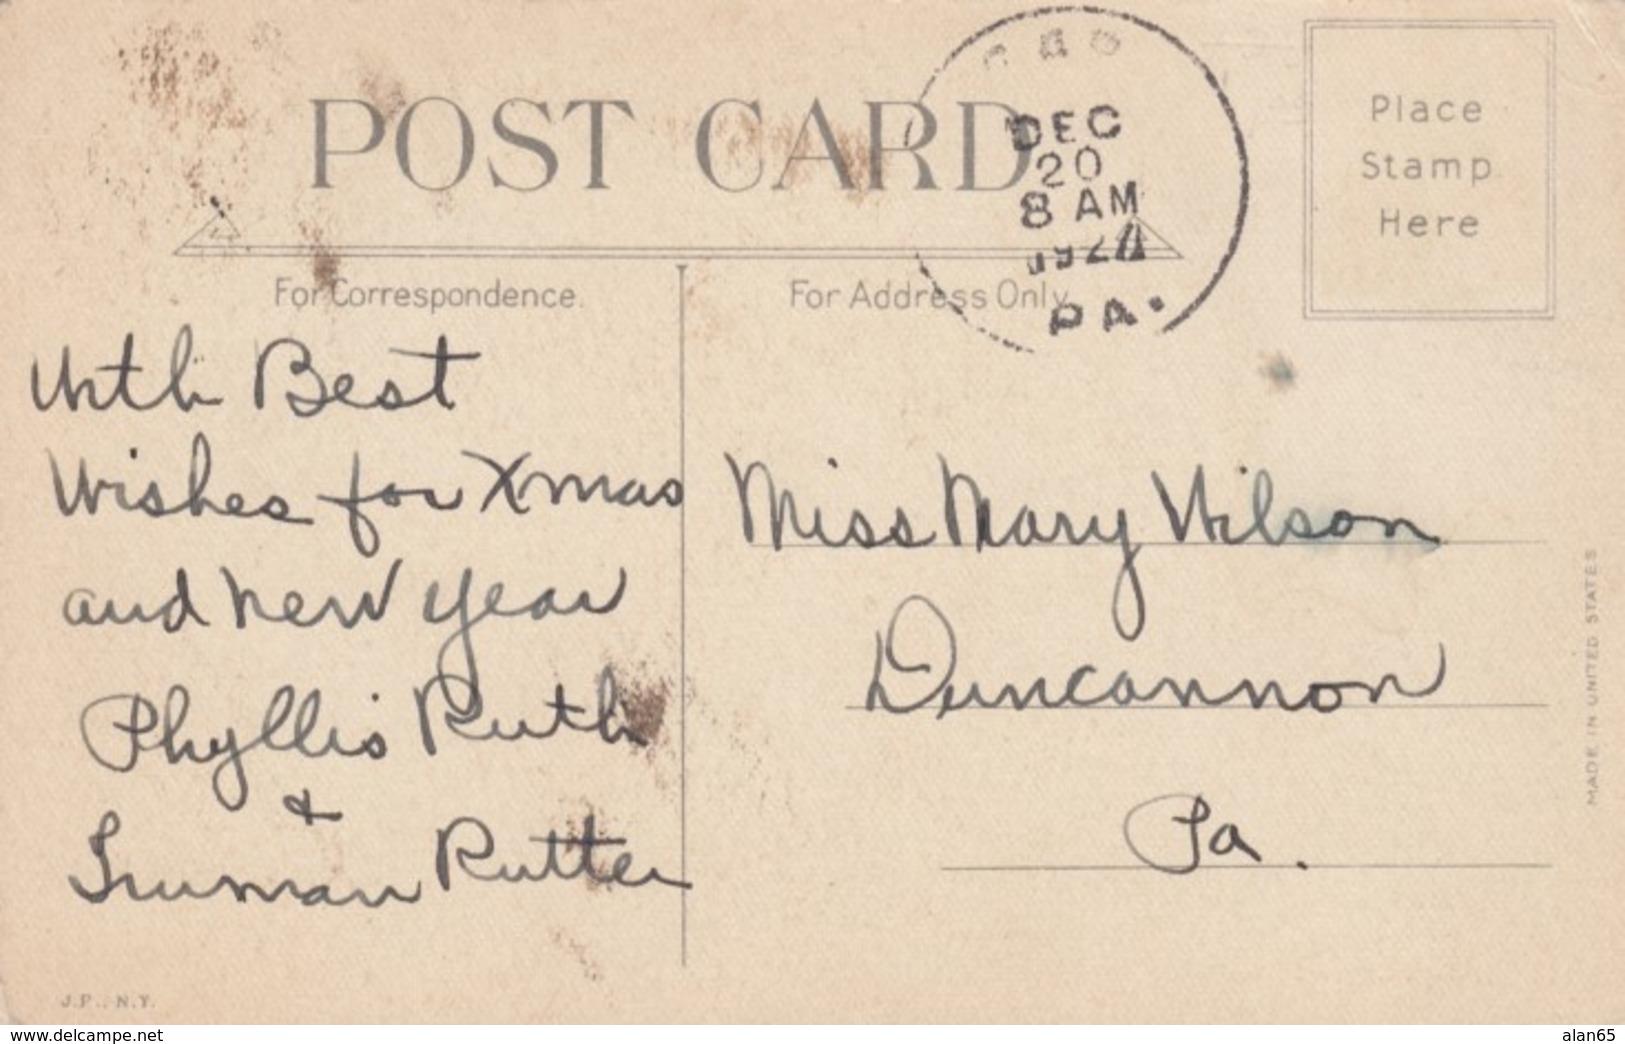 POST CARD
DEC
20
8 AM
PA.
Place
Stamp
Here
For Correspondence.
For Address Only.
With Best
Wishes for Xmas
and New Year
Phyllis Ruth
+
Truman Rutter
Miss Mary Wilson
Duncannon
Pa.
MADE IN UNITED STATES
J.P., N.Y.
www.delcampe.net
alan65